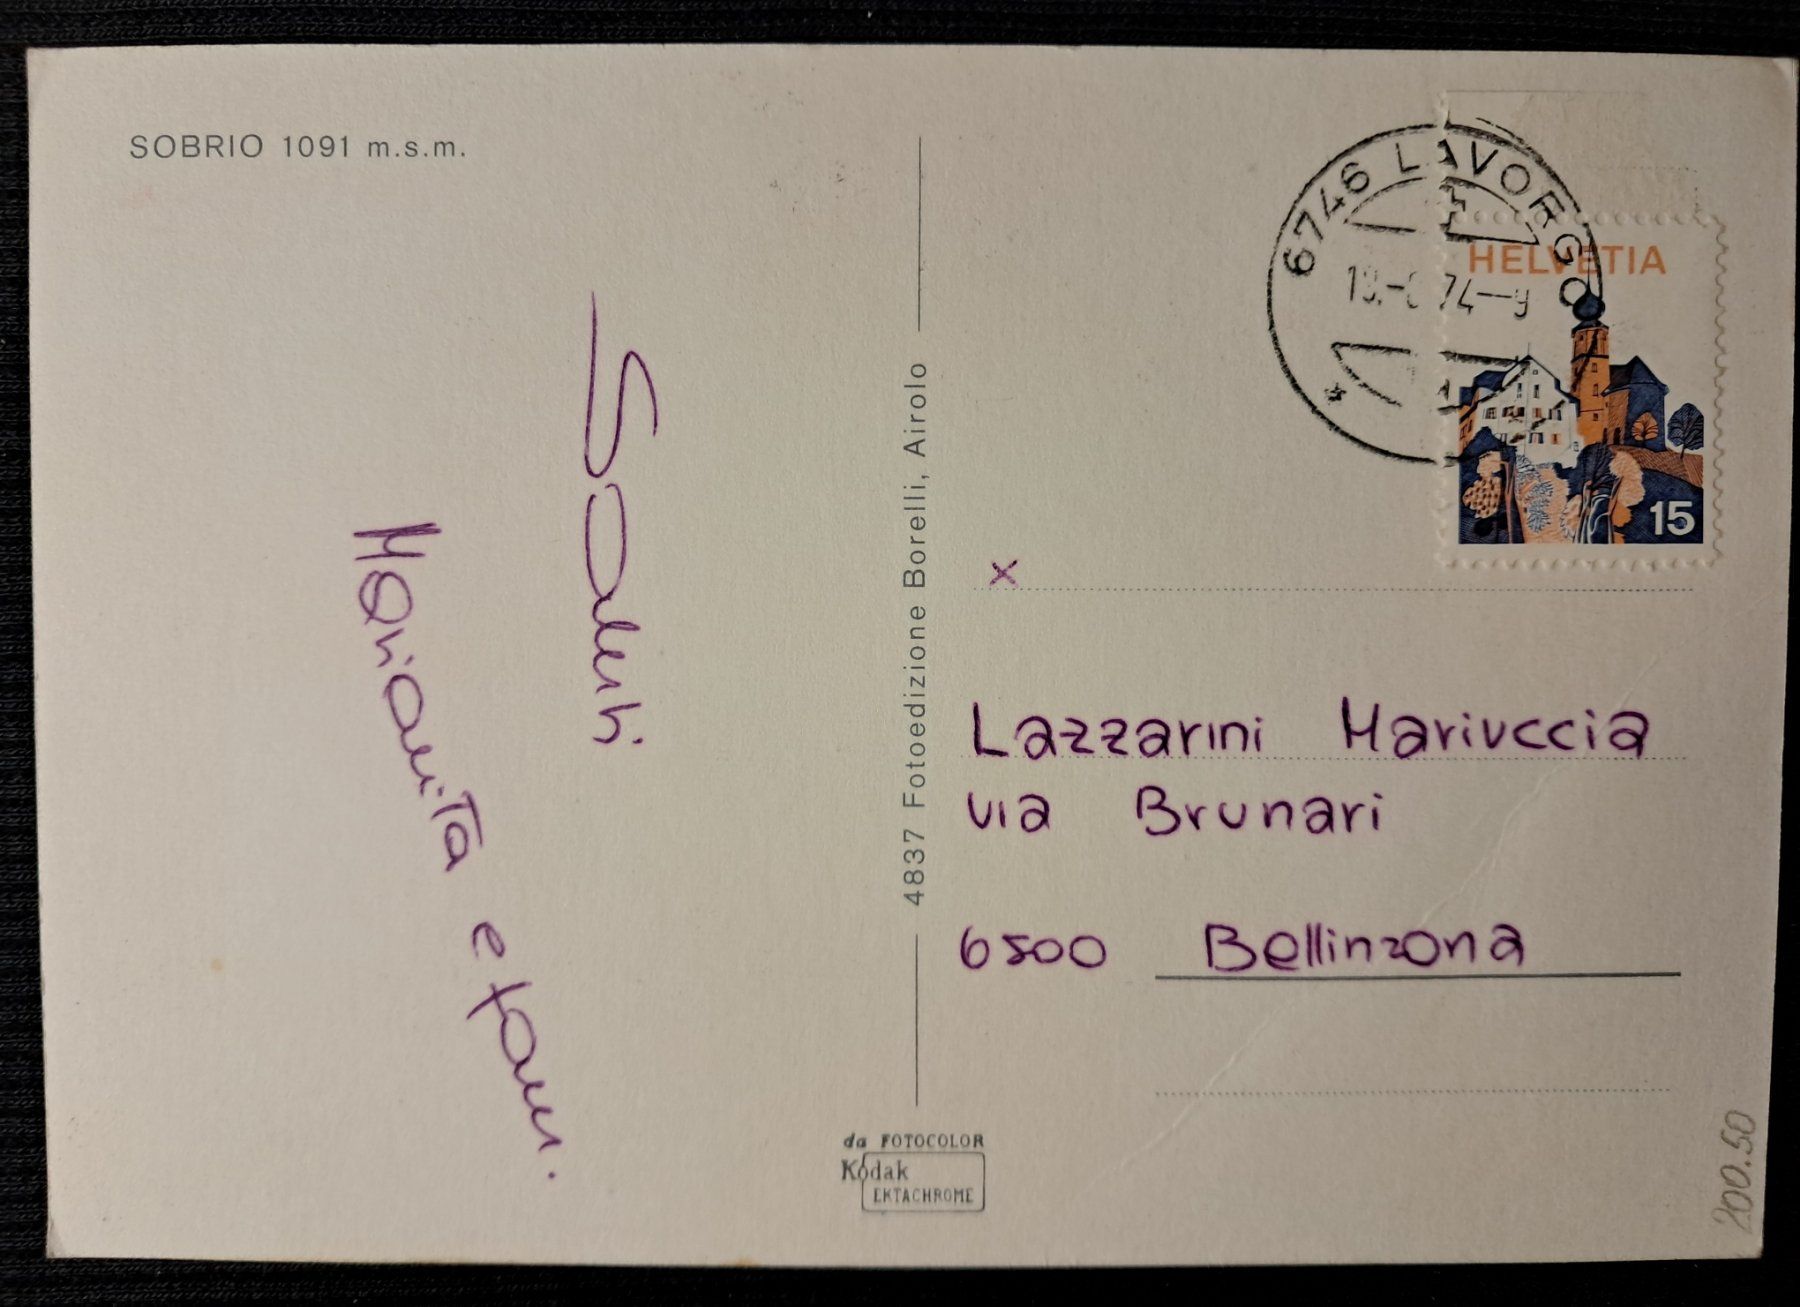 SOBRIO 1091 m.s.m.
Saluti
Marianita e fam.
4837 Fotoedizione Borelli, Airolo
da FOTOCOLOR
Kodak
EKTACHROME
6746 LAVORGO
74-9
HELVETIA
15
x
Lazzarini Mariuccia
via Brunari
6500 Bellinzona
200.50